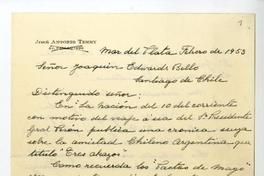 José Antonio Terry
Mar del Plata Febrero de 1953
Señor Joaquin Edwards Bello
Santiago de Chile
Distinguido señor:
En "La Nación" del 10 del corriente
con motivo del viaje á esa del Sr Presidente
Gral Perón publica una crónica suya
sobre la amistad Chileno Argentina que
titula "Tres abazos".
Como recuerda los "Pactos de Mayo"